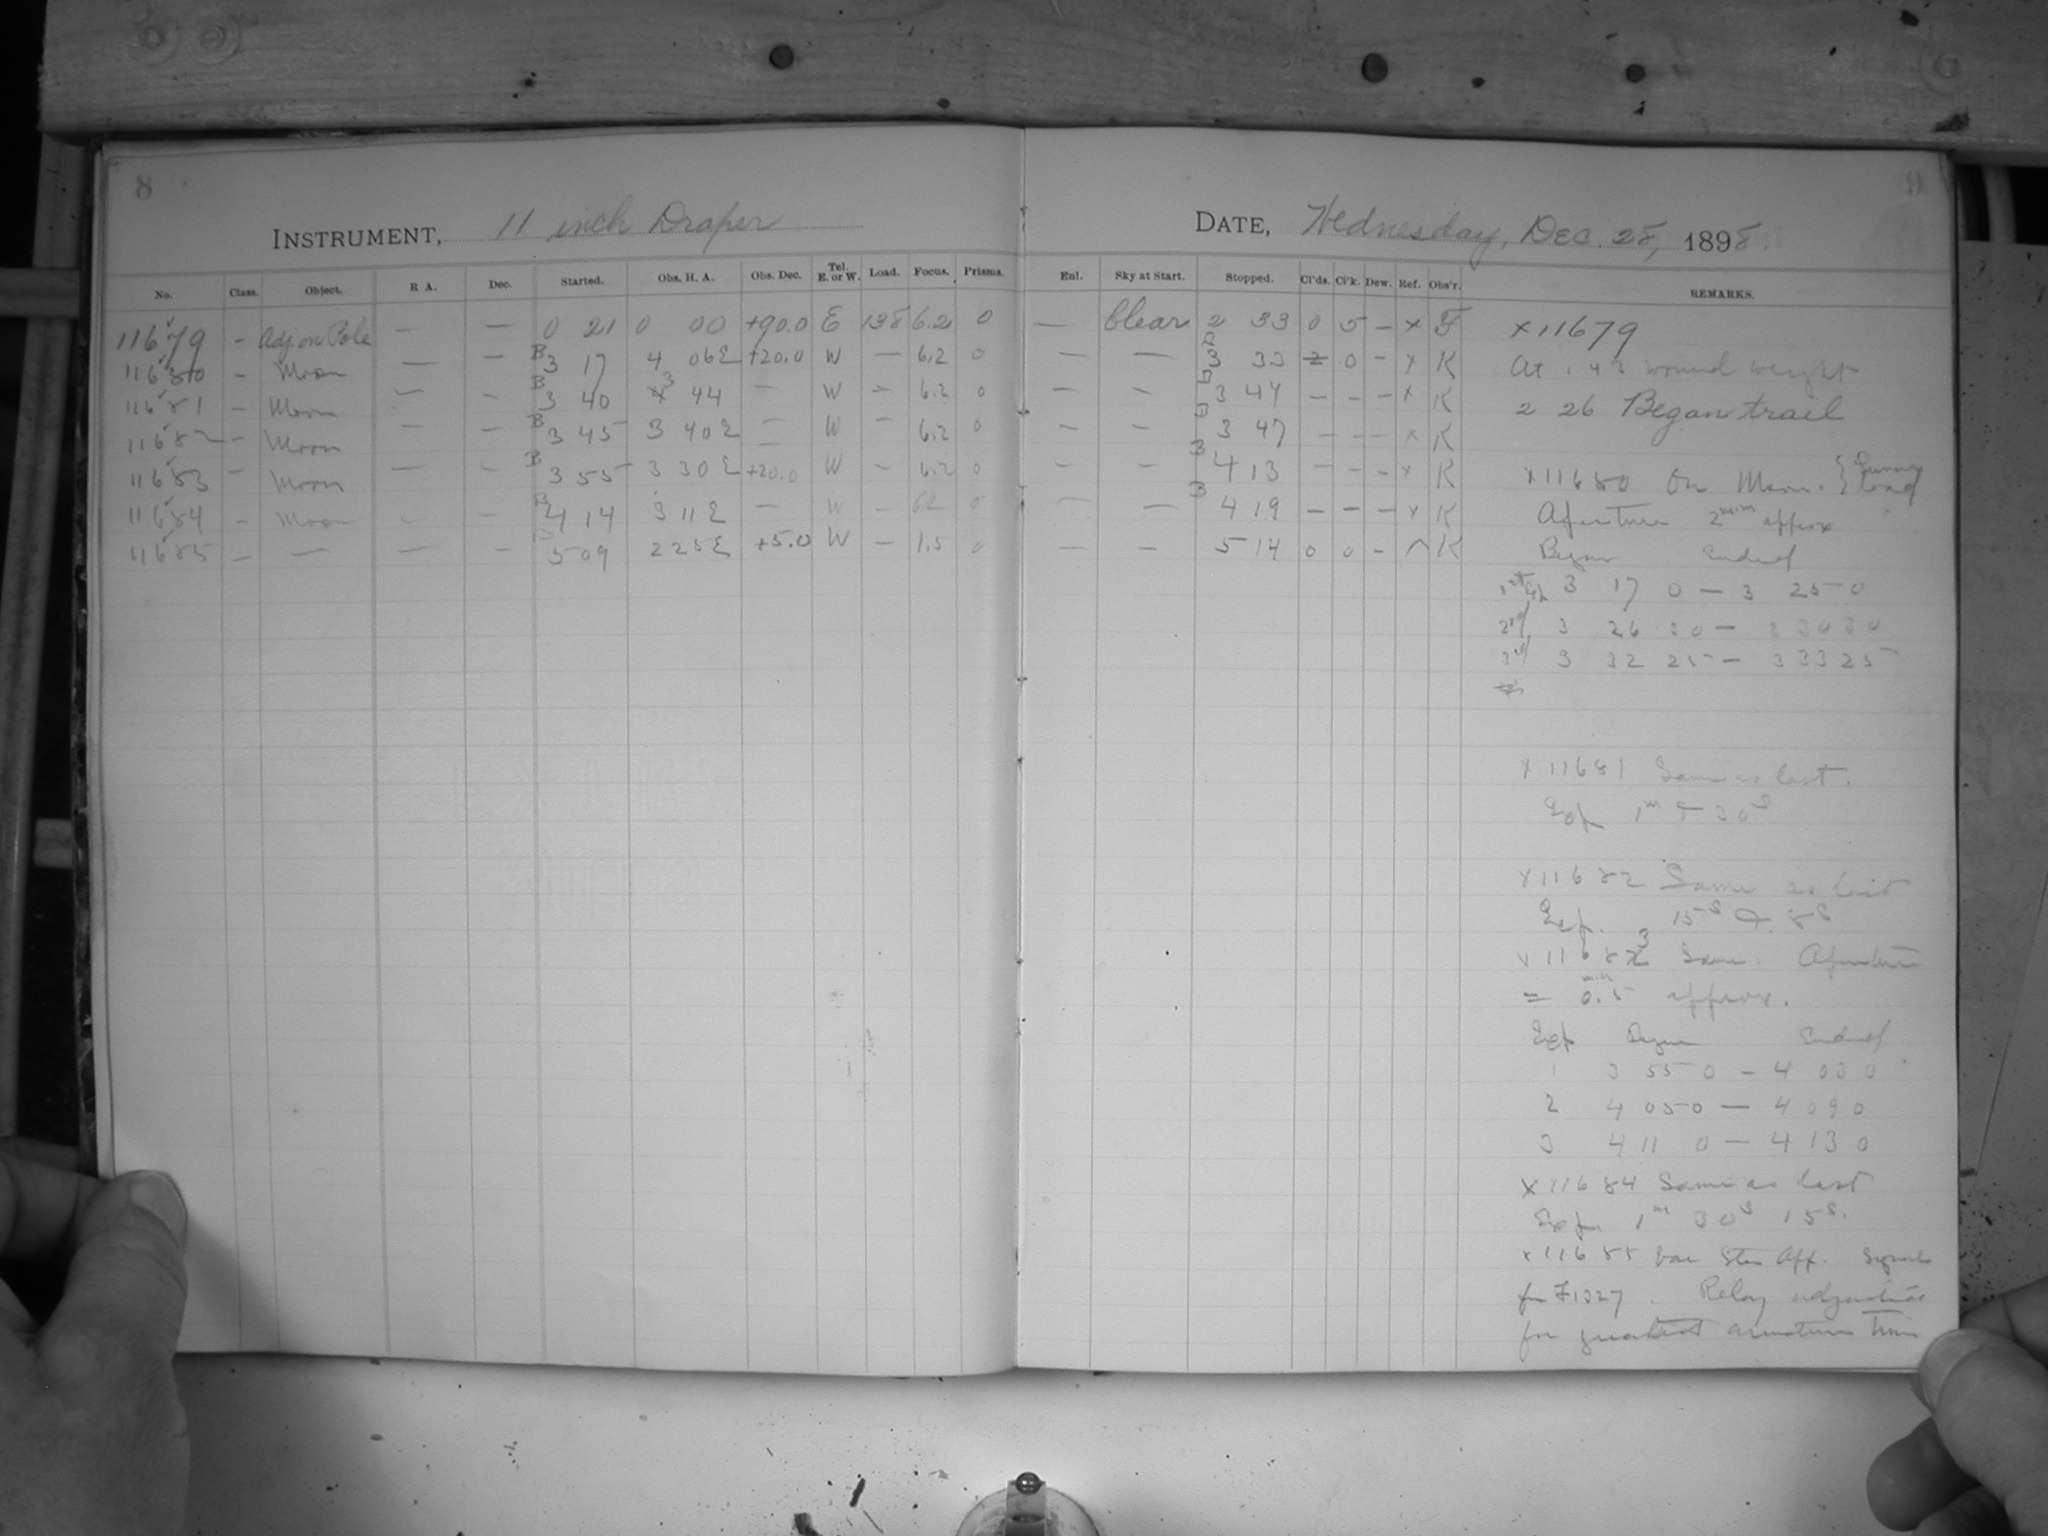 8
INSTRUMENT, 11 inch Draper
DATE, Wednesday, Dec. 28, 1898.
No. Class. Object. R A. Dec. Started. Obs. H. A. Obs. Dec. Tel. E. or W. Load. Focus. Prisms. Enl. Sky at Start. Stopped. Cl'ds. Cl'k. Dew. Ref. Obs'r. REMARKS.
11679 – Adj. on Pole — — 0 21 0 00 +90.0 E 138 6.2 0 — Clear 2 33 0 5 – x F
11680 – Moon — — B 3 17 4 06 E +20.0 W — 6.2 0 — — 3 33 2 0 – x K
11681 – Moon — — B 3 40 3 44 — W — 6.2 0 — — 3 44 – – – x K
11682 – Moon — — B 3 45 3 40 E — W — 6.2 0 — — 3 47 – – – x K
11683 – Moon — — B 3 55 3 30 E +20.0 W — 6.2 0 — — B 4 13 – – – x K
11684 – Moon — — B 4 14 3 11 E — W — 6.2 0 — — B 4 19 – – – x K
11685 – — — — 5 09 2 25 E +5.0 W — 1.5 0 — — 5 14 0 0 – K
x11679
At 1 43 wound weight
2 26 Began trail
x11680 On Moon.
Aperture 2 mm approx
Began Ended
1st Exp 3 17 0 — 3 25 0
2nd 3 26 30 — 3 30 30
3rd 3 32 25 — 3 33 25
x11681 Same as last.
Exp 1m & 30s
x11682 Same as last
Exp. 15s & 8s
x11683 Same. Aperture
= 0.5 mm approx.
Exp Began Ended
1 3 55 0 — 4 03 0
2 4 05 0 — 4 09 0
3 4 11 0 — 4 13 0
x11684 Same as last
Exp 1m 30s 15s.
x11685 App. Signals
for F1327. Relay adjusted
for greatest armature time